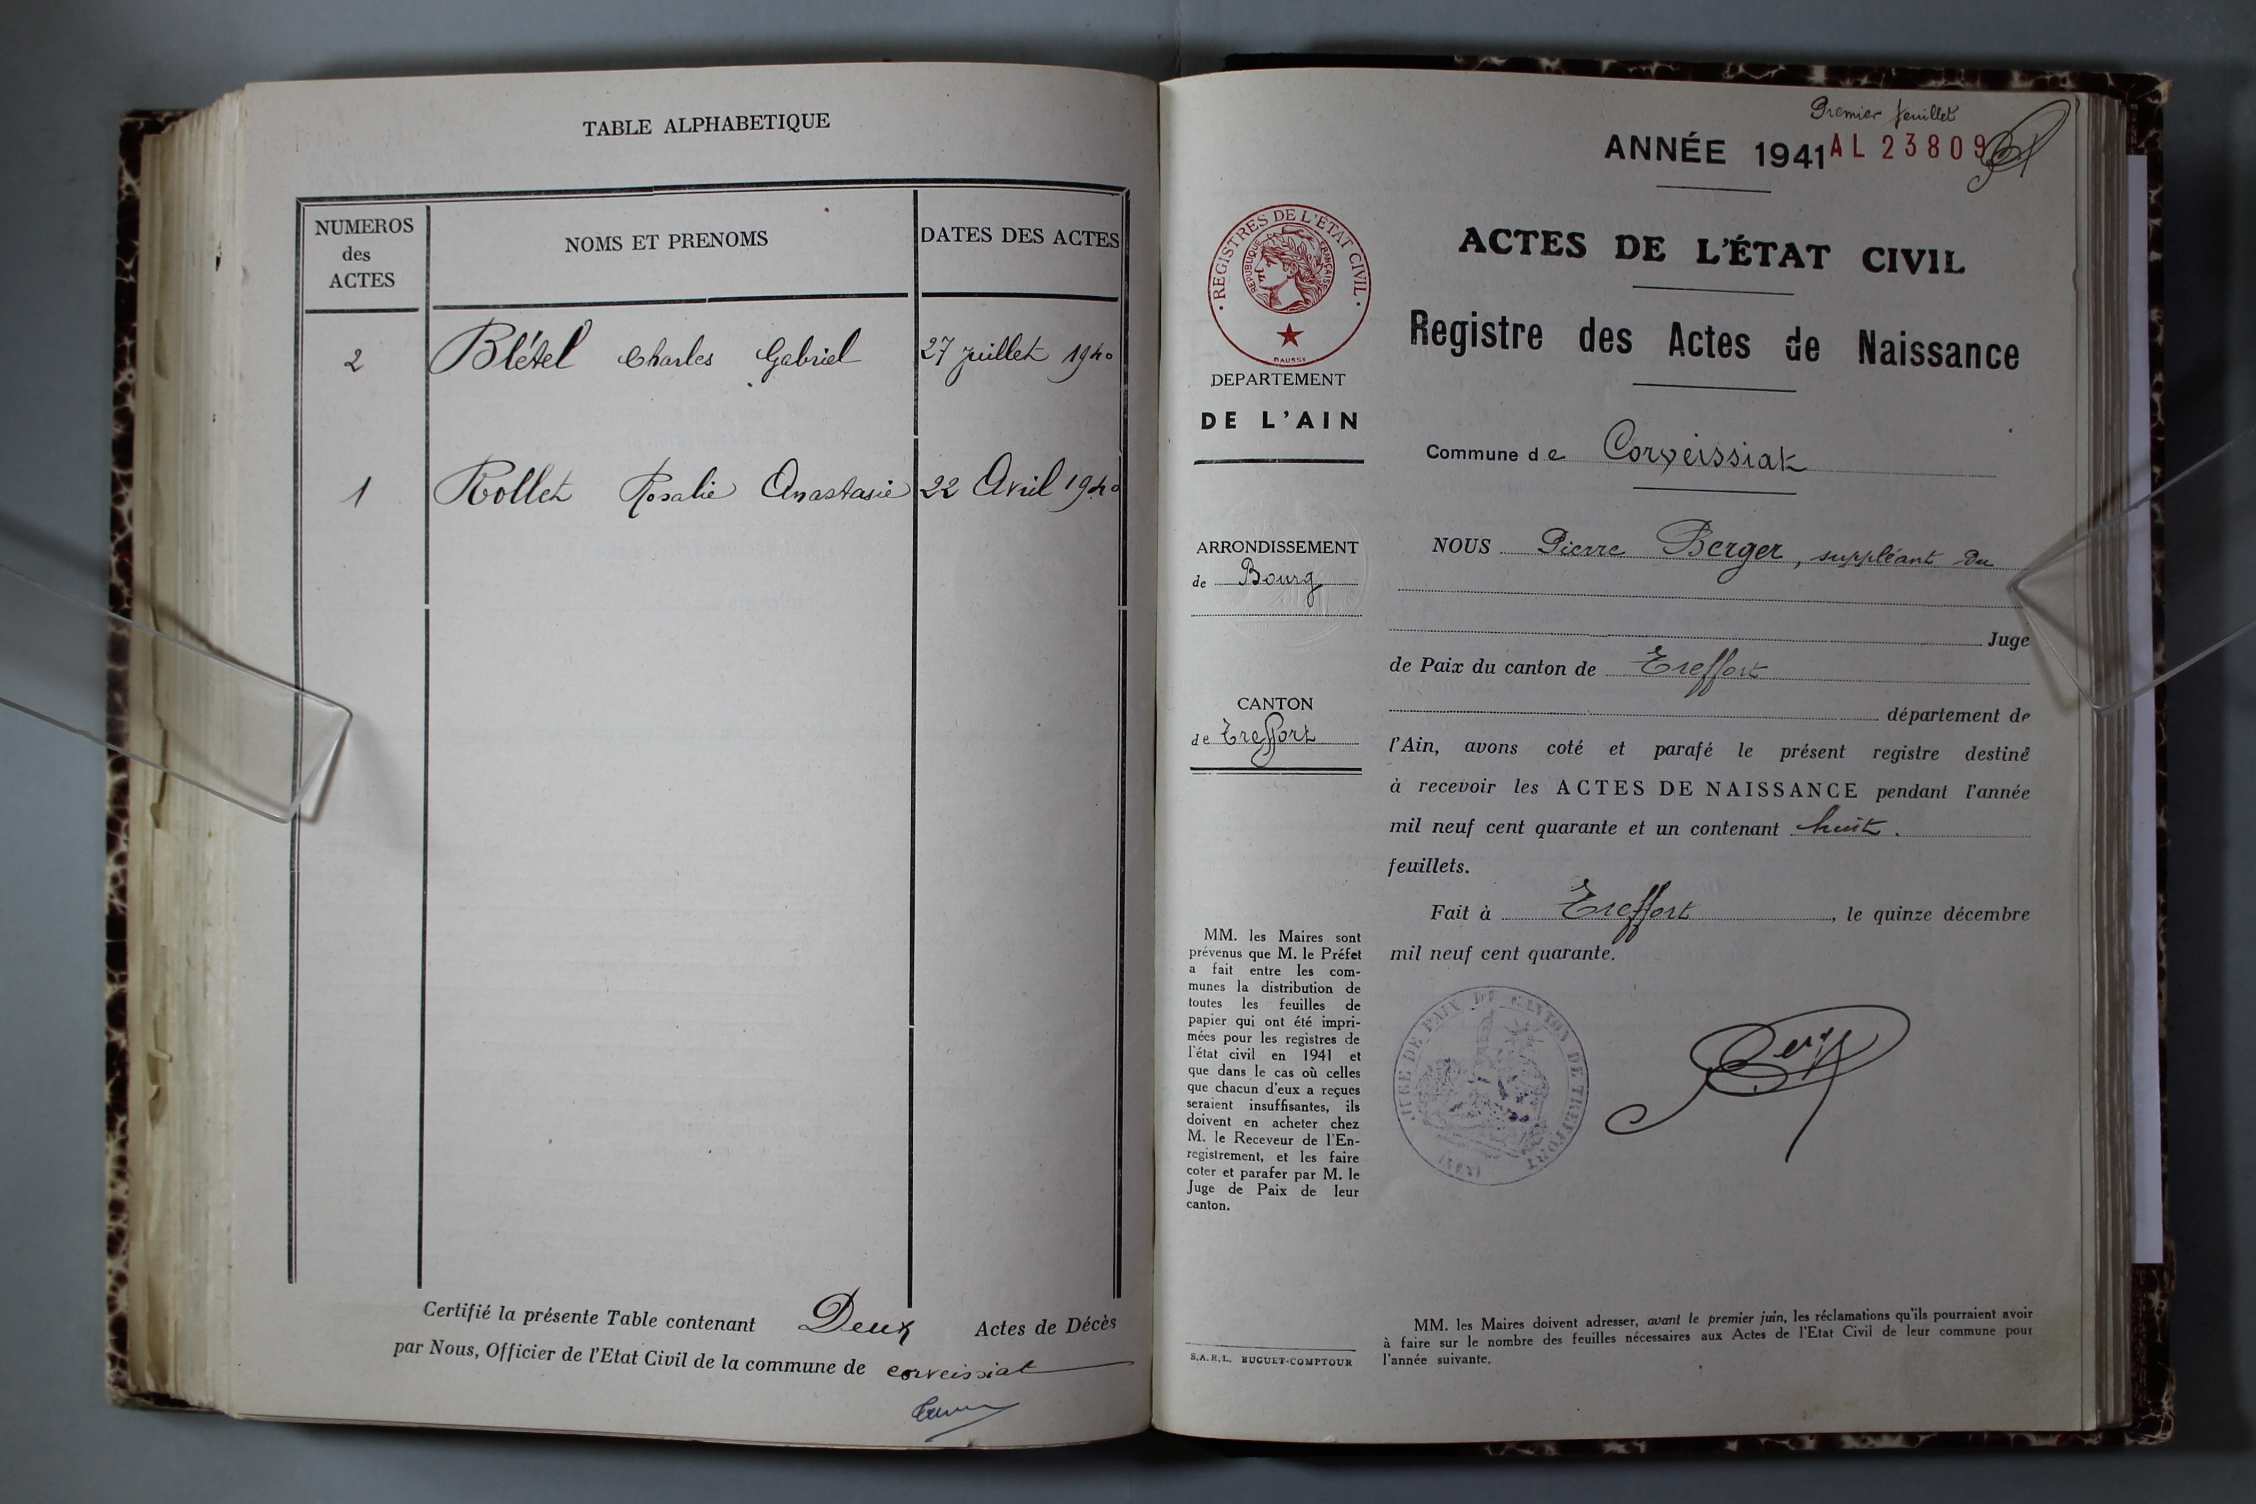 TABLE ALPHABETIQUE
NUMEROS
des
ACTES
NOMS ET PRENOMS
DATES DES ACTES
2 Blétel Charles Gabriel 27 Juillet 1940
1 Rollet Rosalie Anastasie 22 Avril 1940
Certifié la présente Table contenant Deux Actes de Décès
par Nous, Officier de l'Etat Civil de la commune de corveissiat
Premier feuillet
ANNÉE 1941 AL 23809
REGISTRES DE L'ÉTAT CIVIL
REPUBLIQUE FRANÇAISE
DEPARTEMENT
DE L'AIN
ARRONDISSEMENT
de Bourg
CANTON
de Treffort
MM. les Maires sont
prévenus que M. le Préfet
a fait entre les com-
munes la distribution de
toutes les feuilles de
papier qui ont été impri-
mées pour les registres de
l'état civil en 1941 et
que dans le cas où celles
que chacun d'eux a reçues
seraient insuffisantes, ils
doivent en acheter chez
M. le Receveur de l'En-
registrement, et les faire
coter et parafer par M. le
Juge de Paix de leur
canton.
S.A.R.L. BUGUET-COMPTOUR
ACTES DE L'ÉTAT CIVIL
Registre des Actes de Naissance
Commune de Corveissiat
NOUS Pierre Berger, suppléant du
Juge
de Paix du canton de Treffort
département de
l'Ain, avons coté et parafé le présent registre destiné
à recevoir les ACTES DE NAISSANCE pendant l'année
mil neuf cent quarante et un contenant huit.
feuillets.
Fait à Treffort, le quinze décembre
mil neuf cent quarante.
JUGE DE PAIX DU CANTON DE TREFFORT
(AIN)
MM. les Maires doivent adresser, avant le premier juin, les réclamations qu'ils pourraient avoir
à faire sur le nombre des feuilles nécessaires aux Actes de l'Etat Civil de leur commune pour
l'année suivante.